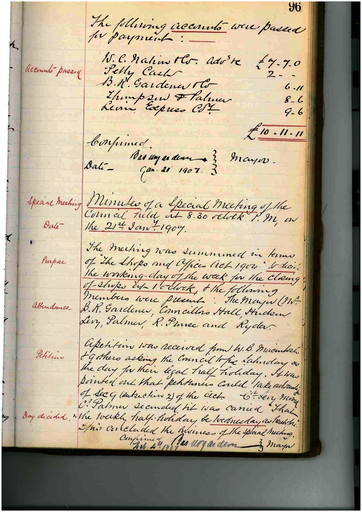 96
The following accounts were passed
for payment :
Accounts passed
W.C. & Co Advs £7-7-0
Petty Cash 2 - -
B.R. Gardener & Co 6-11
Thompson & Palmer 8-6
Levin Express Co 9-6
£10-11-11
Confirmed
Mayor
Date Jan 21 1907
Special Meeting
Minutes of a Special Meeting of the
Council held at 8.30 o'clock P.M. on
Date
the 21st Janr 1907.
Purpose
The Meeting was summoned in terms
of the Shops and Offices Act 1904 to decide
the working day of the week for the closing
of shops at 1 o'clock, & the following
Attendance
Members were present : The Mayor Mr
B.R. Gardener, Councillors Hall, Hudson
Levy, Palmer, R. Prouse and Ryder.
Petition
A petition was received from W.B. Macintosh
& others asking the Council to fix Saturday as
the day for their legal half holiday. It was
pointed out that petitioners could take advantage
of Sec 4 (subsection 2) of the act. Cr Levy
Cr Palmer seconded & it was carried That
Day decided
the weekly half holiday be Wednesday
This concluded the business of the special meeting
Confirmed
Feb 4th Mayor